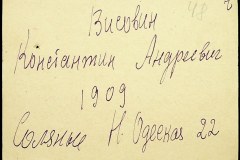 48
Висовин
Константин Андреевич
1909
Соляные Н. Одесская 22